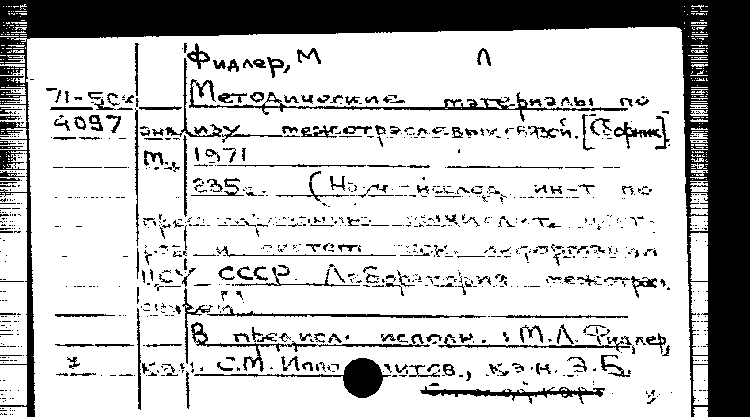 Фидлер, М Л
71-5ск Методические материалы по
4097 анализу межотраслевых связей. [Сборник].
М., 1971
235с. (Науч.-исслед. ин-т по
проектированию вычислит. цент-
ров и систем экон. информации
ЦСУ СССР Лаборатория межотрас.
связей").
В предисл. исполн.: М.Л. Фидлер,
к.э.н. С.М. Иппо литов, к.э.н. Э.Б.